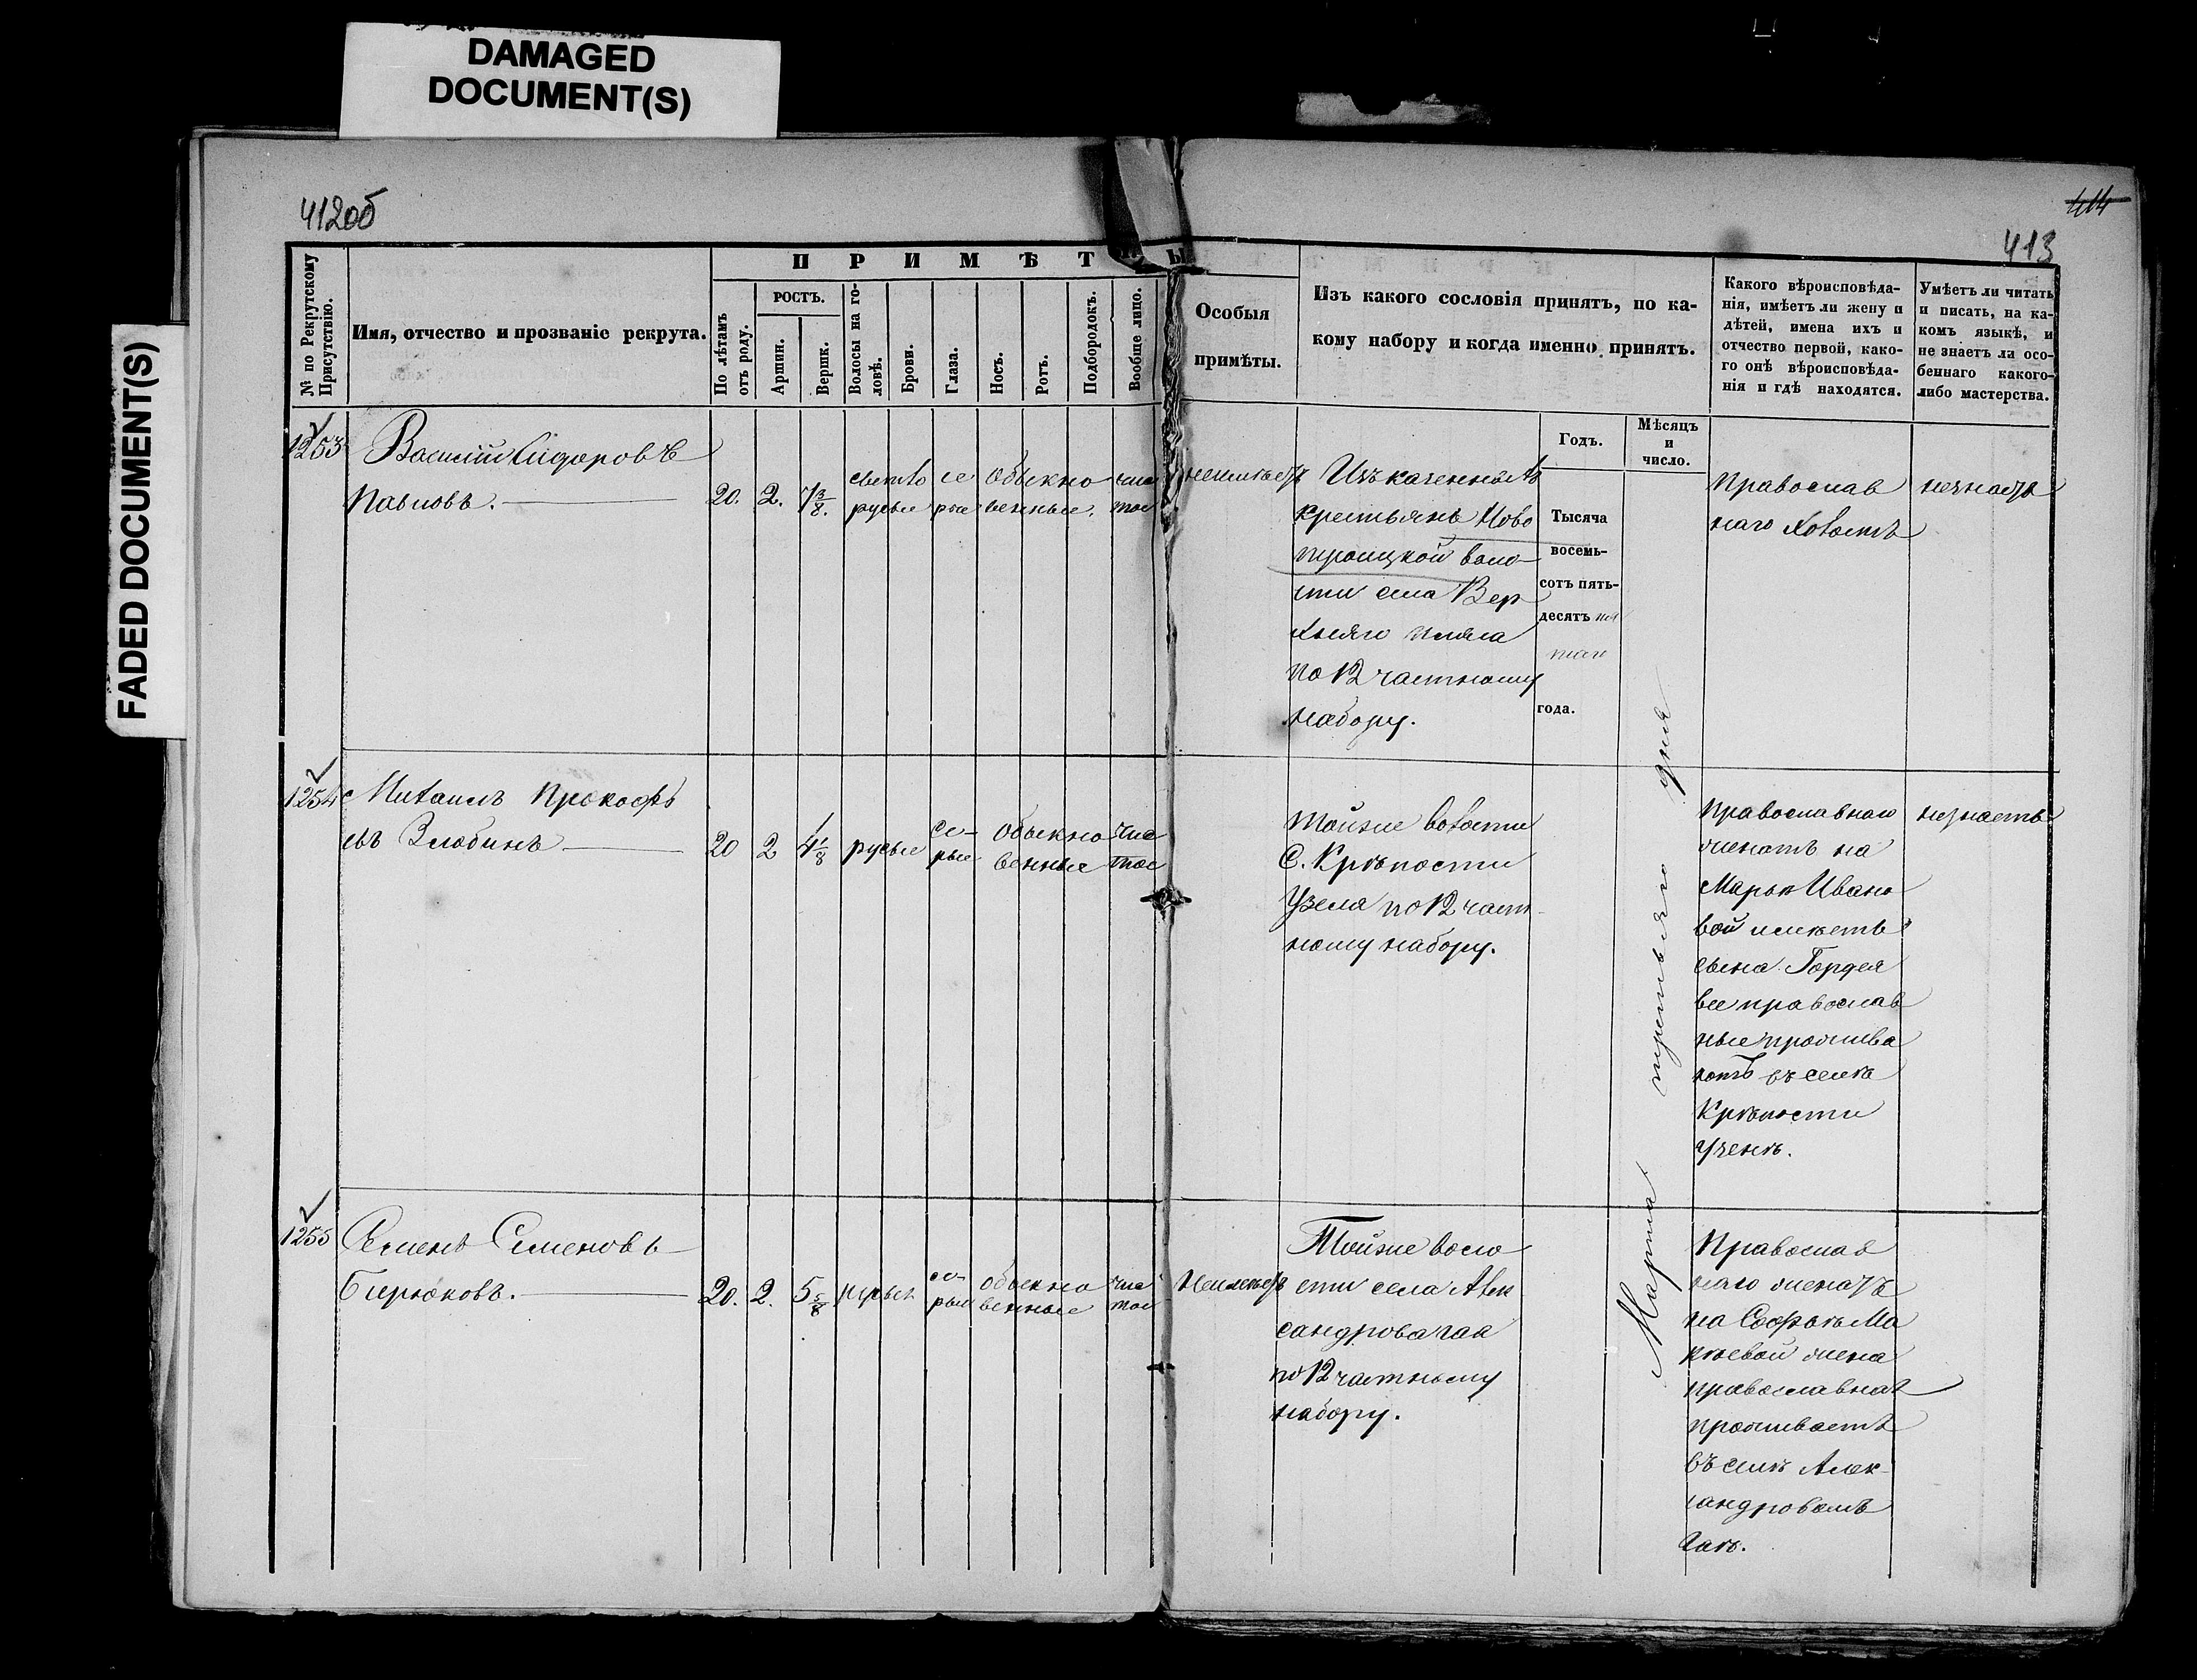 DAMAGED
DOCUMENT(S)
FADED DOCUMENT(S)
412об
414
413
№ по Рекрутскому
Присутствію.
Имя, отчество и прозваніе рекрута.
ПРИМѢТЫ
По лѣтамъ
отъ роду.
РОСТЪ.
Аршин.
Вершк.
Волосы на го-
ловѣ.
Брови.
Глаза.
Носъ.
Ротъ.
Подбородокъ.
Вообще лицо.
Особыя
примѣты.
Изъ какого сословія принятъ, по ка-
кому набору и когда именно принятъ.
Какого вѣроисповѣда-
нія, имѣетъ ли жену и
дѣтей, имена ихъ и
отчество первой, како-
го онѣ вѣроисповѣда-
нія и гдѣ находятся.
Умѣетъ ли читать
и писать, на ка-
комъ языкѣ, и
не знаетъ ли осо-
беннаго какого-
либо мастерства.
Годъ.
Мѣсяцъ
и
число.
1253
Василій Сидоровъ
Павловъ.
20.
2.
7 3/8.
светло
русые
се
рые
обыкно
венные.
чис
тое
неимѣетъ
Изъ казенныхъ
крестьянъ Ново
троицкой воло-
сти села Вер
хняго
по 12 частному
набору.
Тысяча
восемь-
сотъ пять-
десятъ пя
таго
года.
Марта третьяго дня
Православ
наго холостъ
незнаетъ
1254
Михаилъ Прокофь
евъ Злобинъ
20
2
4 1/8
русые
се-
рые
обыкно
венные
чис
тое
Тойже волости
С. Крѣпости
Узеня по 12 част-
ному набору.
Православнаго
женатъ на
Марьѣ Ивано
вой имѣетъ
сына Гордея
все православ
ные прожива
ютъ въ селѣ
Крѣпости
Узенѣ.
незнаетъ
1255
Семенъ Семеновъ
Бирюковъ.
20.
2.
5 5/8
русые
се-
рые
обыкно
венные
чис
тое
Неимѣетъ
Тойже воло
сти села Алек
сандрова гая
по 12 частному
набору.
Православ
наго женатъ
на Софьѣ Ма
кѣевой жена
православная
проживаетъ
въ селѣ Алек-
сандровомъ
Гаѣ.